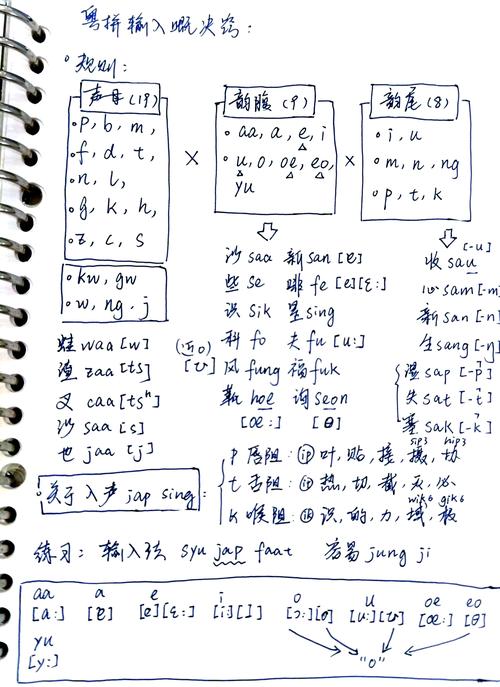 粤拼输入概决窍:
规则:
声母(19) 韵腹(9) 韵尾(8)
p, b, m,
f, d, t,
n, l,
g, k, h,
z, c, s
kw, gw
w, ng, j
×
aa, a, e, i
u, o, oe, eo,
yu
×
i, u
m, n, ng
p, t, k
蛙 waa [w]
渣 zaa [ts]
叉 caa [tsʰ]
沙 saa [s]
也 jaa [j]
沙 saa 新 san [ɐ]
些 se 啡 fe [e][ɛ:]
识 sik 星 sing
科 fo 夫 fu [u:]
(近o) [ʊ] 风 fung 福 fuk
靴 hoe 询 seon
[œ:] [ɵ]
[-u]
收 sau
心 sam [-m]
新 san [-n]
生 sang [-ŋ]
湿 sap [-p̚]
失 sat [-t̚]
塞 sak [-k̚]
关于入声 jap sing:
sip3 hip3
p 唇阻: ip 叶, 贴, 接, 摄, 协
t 舌阻: it 热, 切, 截, 灭, 必
wik6 gik6
k 喉阻: ik 识, 的, 力, 域, 极
练习: 输入法 syu jap faat 容易 jung ji
aa a e i o u oe eo
[a:] [ɐ] [e][ɛ:] [i:][ɪ] [ɔ:][o] [u:][ʊ] [œ:] [ɵ]
yu
[y:]
"o"